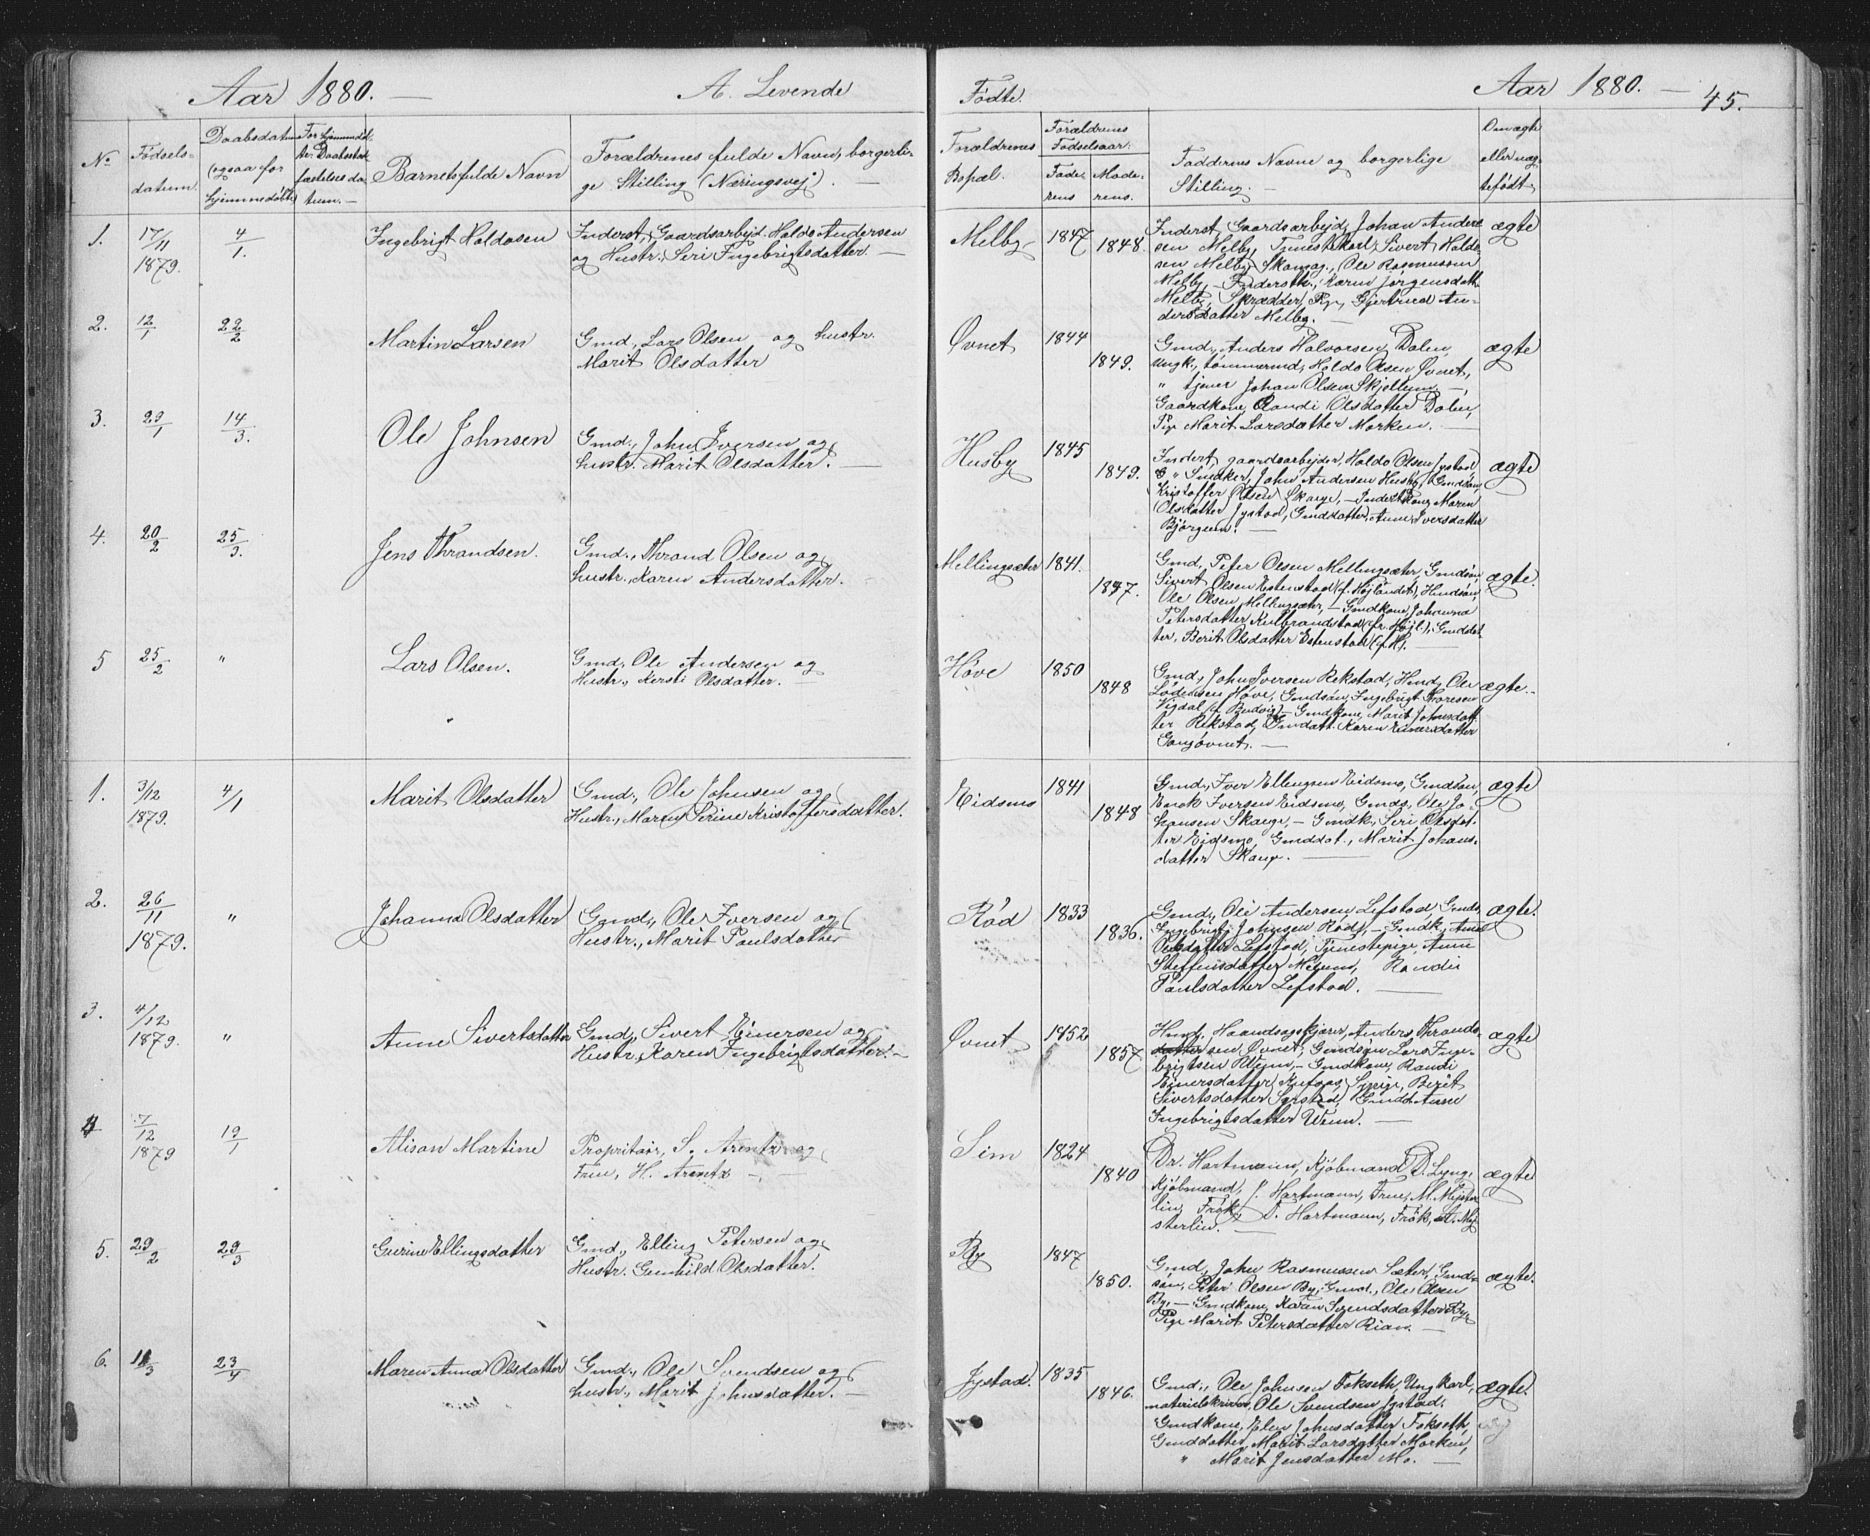 Aar 1880. — A. Levende Fødte. Aar 1880. — 45.
No
Fødsels-
datum.
Daabsdatum
(ogsaa for
hjemmedøbte
For hjemmedøb-
te: Daabsstad-
fæstelses da-
tum. —
Barnets fulde Navn
Forældrenes fulde Navn, borgerli-
ge Stilling (Næringsvej). —
Forældrenes
Bopæl.
Forældrenes
Fødselsaar:
Fade-
rens
Mode-
rens.
Faddernes Navne og borgerlige
Stilling. —
Om ægte
eller uæg-
tefødt.
1. 17/11 1879. 4/1. Ingebrigt Haldosen
Inderst, Gaardsarbejd. Haldo Andersen
og Hustr. Seri Ingebrigtsdatter. —
Melby 1847 1848.
Inderst, Gaardsarbejd, Johan Ander-
sen Melby, Tjenestekarl, Sivert Haldo-
sen Melby, Skomag., Ole Rasmussen
Melby, — Inderstk., Karen Jørgensdatt.
Melby, Skrædder, Pige, Gjertrud An-
dersdatter Melby. —
ægte
2. 12/1 22/2 Martin Larsen
Gmd., Lars Olsen og hustr.
Marit Olsdatter
Øvnet 1844 1849.
Gmd., Anders Halvorsen Dalen,
Ungk., tømmermd, Haldo Olsen Øvnet,
" tjener Johan Olsen Skjellum, —
Gaardkone, Randi Olsdatter Dalen,
Pige Marit Larsdatter Morken. —
ægte
3. 29/1 14/3. Ole Johnsen
Gmd., John Iversen og
hustr. Marit Olsdatter. —
Husby 1845 1849.
Inderst, gaardsarbejder, Haldo Olsen Jystad,
" Snidker, John Andersen Husby, Gmdsøn,
Kristoffer Olsen Skarge, — Inderstkone, Maren
Olsdatter Jystad, Gmddatter, Anne Iversdatter
Bjørgum. —
ægte
4. 20/2 25/3. Jens Thrandsen.
Gmd., Thrand Olsen og
hustr., Karen Andersdatter.
Mellingsæter 1841. 1847.
Gmd, Peter Olsen Mellingsæter, Gmdsøn,
Sivert Olsen Estenstad (f. Højlandet), Hmdsøn,
Ole Olsen Mellingsæter, — Gmdkone, Johanna
Petersdatter Kulbrandstad (fr. Højl.), Gmddat
ter, Berit Olsdatter Estenstad (f. H). —
ægte.
5 25/2 " Lars Olsen.
Gmd., Ole Andersen og
Hustr., Kersti Olsdatter. —
Høve 1850 1848
Gmd, John Iversen Rekstad, Hmd, Ole
Høve, Gmdsøn, Ingebrigt Thoresen
Vigdal (f. Budvig), — Gmdkone, Marit Johnsdat-
ter Rekstad, Gmdatt. Karen Einersdatter
Gangøvnet. —
ægte. —
1. 3/12 1879. 4/1 Marit Olsdatter
Gmd., Ole Johnsen og
Hustr., Maren Serine Kristoffersdatter.
Eidsmo 1841 1848
Gmd, Iver Ellingsen Eidsmo, Gmdsøn
Enok Iversen Eidsmo, Gmds, Ole Jo-
hansen Skarge, — Gmdk, Seri Olsdat-
ter Eidsmo, Gmddat., Marit Johans-
datter Skarge. —
ægte
2. 26/11 1879. " Johanna Olsdatter
Gmd., Ole Iversen og
Hustr., Marit Paulsdatter
Rød 1833 1836.
Gmd., Ole Andersen Lefstad, Gmds,
Ingebrigt Johnsen Rød, — Gmdk, Anne
Olsdatter Lefstad, Tjenestepige, Anne
Steffensdatter Megum, Randi
Paulsdatter Lefstad. —
ægte.
3. 4/12 1879. " Anne Sivertsdatter
Gmd., Sivert Einersen og
Hustr., Karen Ingebrigtsdatter. —
Øvnet 1852 1857
Hmd, Haandsagskjører, Anders Thrand-
sen Øvnet, Gmdsøn Lars Inge-
brigtsen Weium, — Gmdkone, Randi
Einersdatter Kufaas, Sypige, Berit
Sivertsdatter Syrstad, Gmdd. Anne
Ingebrigtsdatter Wium. —
ægte
4 7/12 1879 19/1 Alison Martine
Propritair, S. Arentz og
Frue, H. Arentz —
Leim 1824 1840
Dr. Hartmann, Kjøbmand D. Lyng,
Kjøbmand, J. Hartmann, Frue, M. Mejster
lin, Frøk. D. Hartmann, Frøk. A. Mej-
sterlin. —
ægte
5. 29/2 29/3 Gurine Ellingsdatter
Gmd., Elling Petersen og
Hustr. Gunhild Olsdatter.
By 1847 1850.
Gmd, John Rasmussen Sæter, Gmd-
søn, Peter Olsen By, Gmd., Ole Olsen
By, — Gmdkone, Karen Svendsdatter By,
Pige Marit Petersdatter Rian. —
ægte.
6. 11/3 23/4 Maren Anna Olsdatter
Gmd., Ole Svendsen og
hustr., Marit Johnsdatter. —
Jystad. 1835 1846.
Gmd., Ole Johnsen Fokseth, Ungkarl,
materielskriver, Ole Svendsen Jystad,
Gmdkone, Elen Johnsdatter Fokseth,
Gmddatter, Marit Larsdatter Morken,
" Marit Jensdatter Mo. —
ægte.